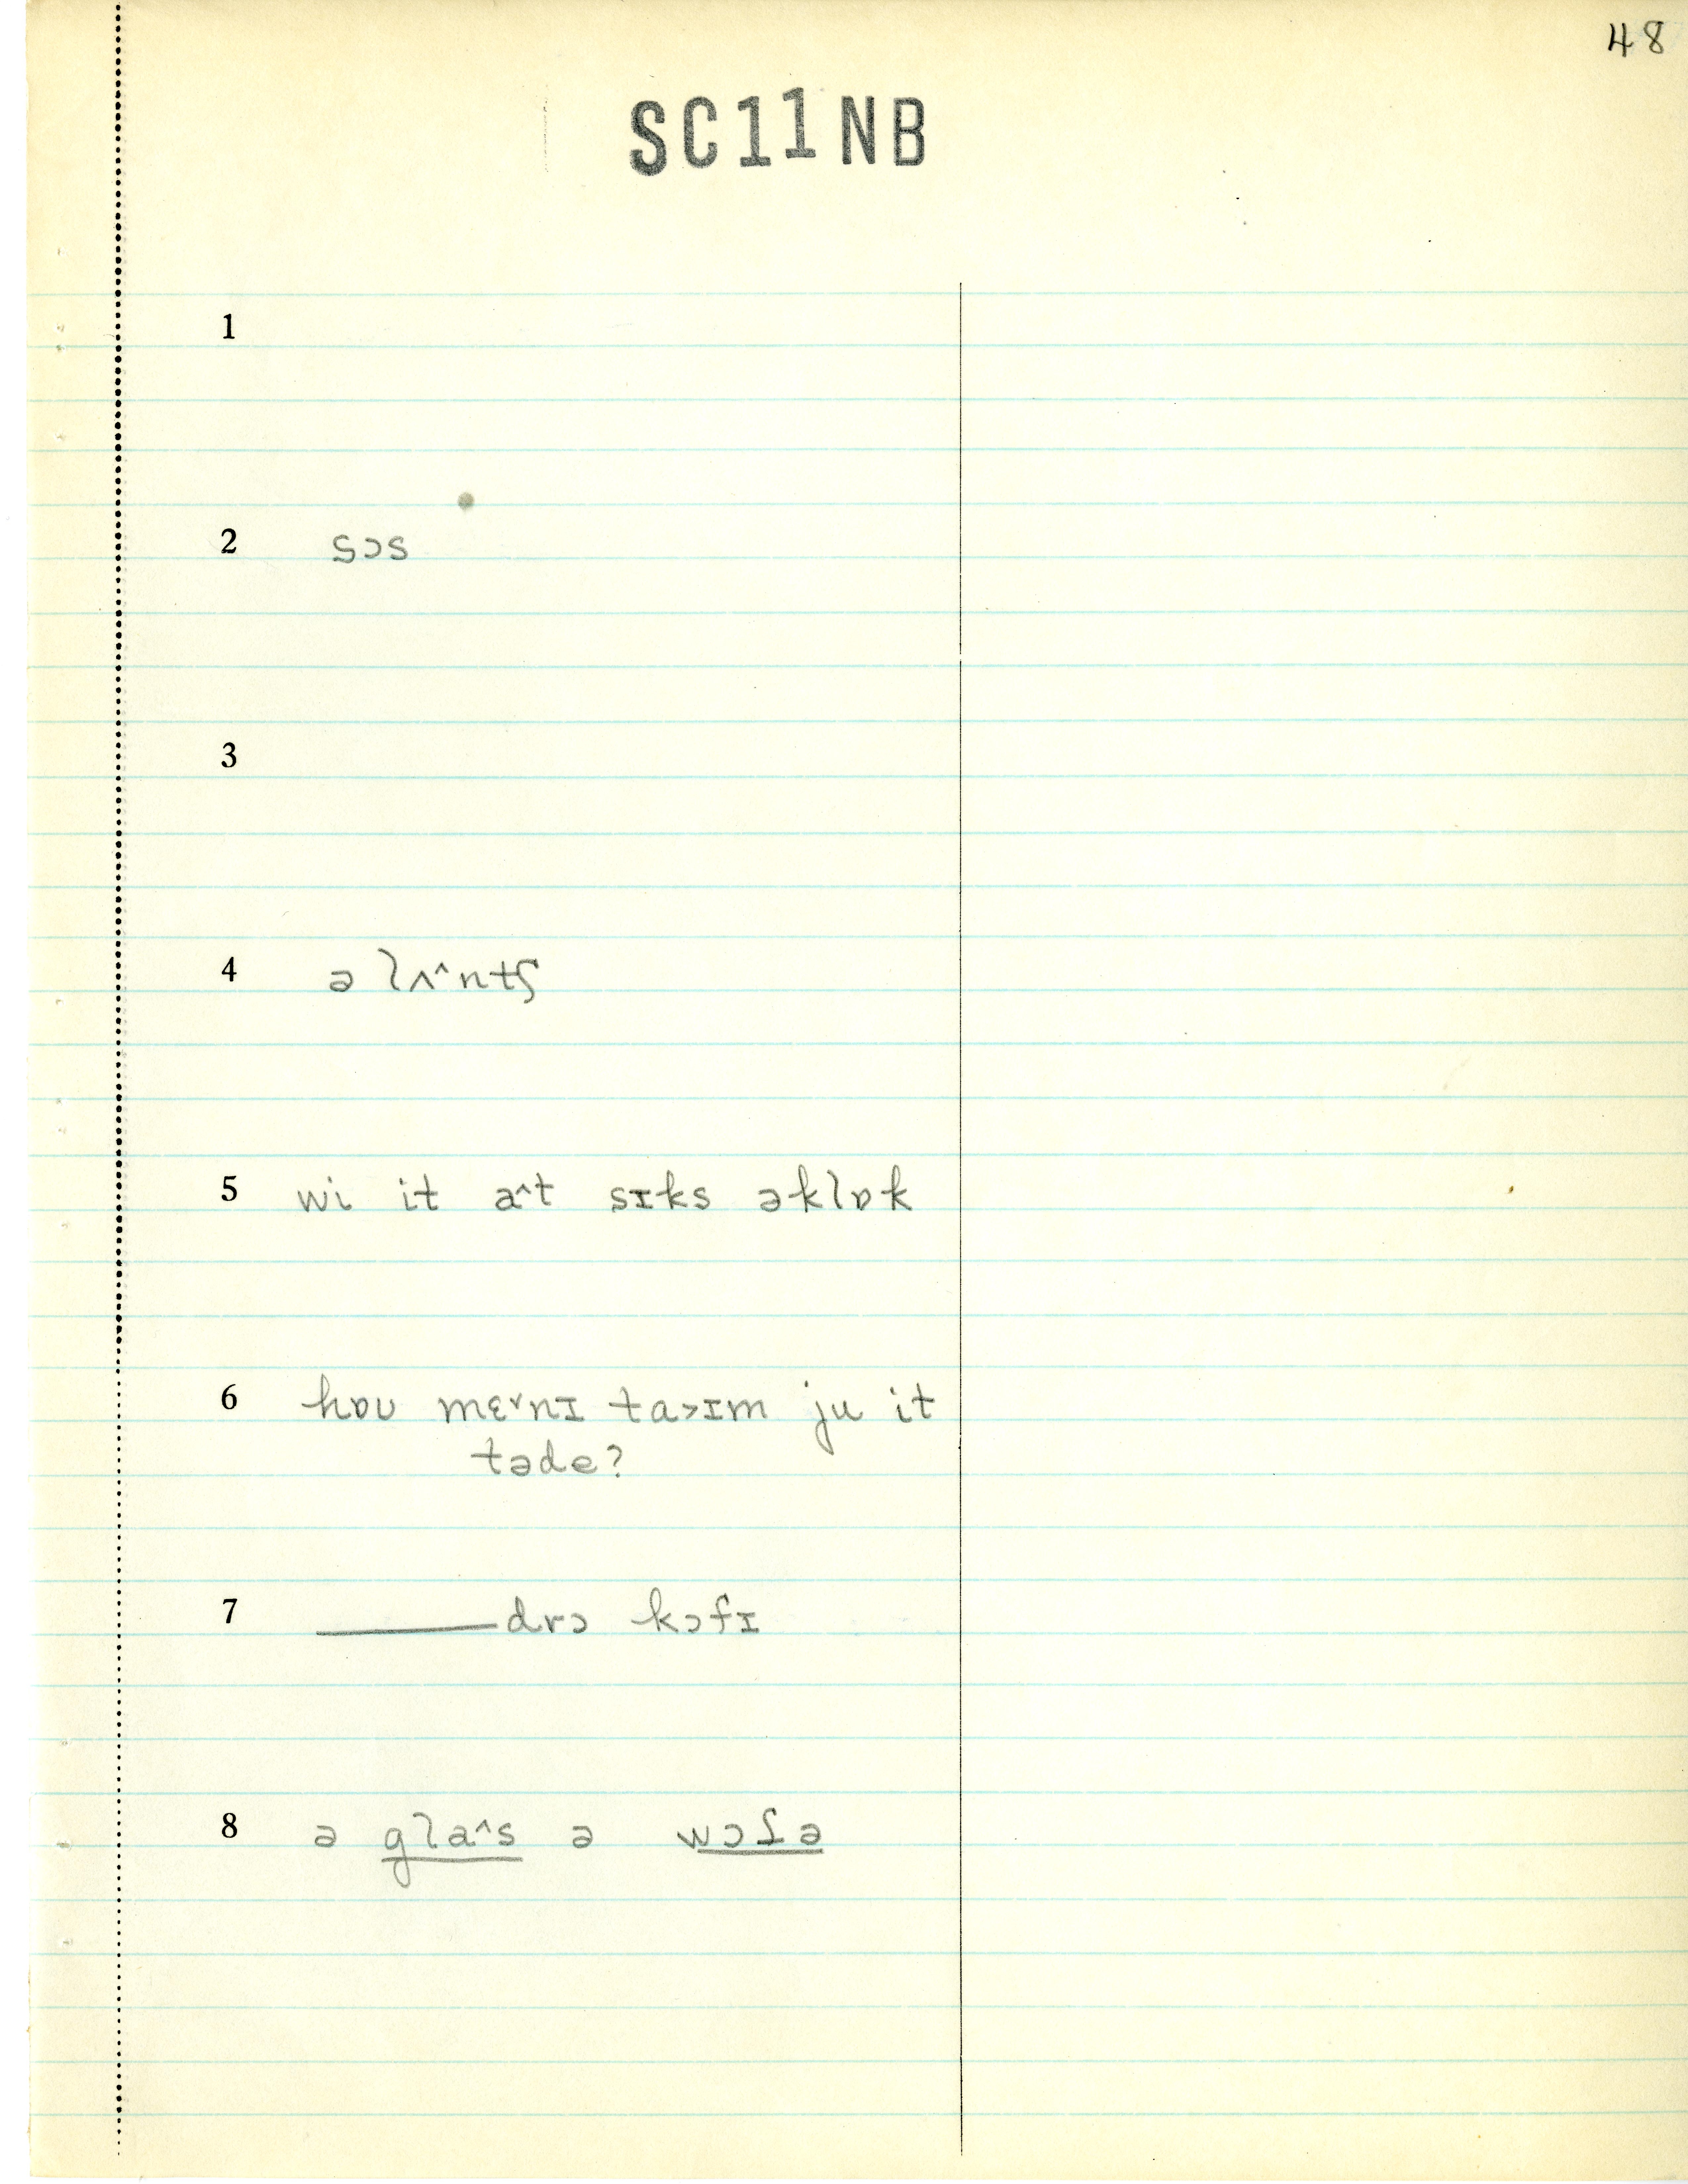 48
SC11NB
1
2 sɔs
3
4 ə lʌ^ntʃ
5 wi it a^t sɪks əklɒk
6 hɒʊ mɛ˅nɪ ta˃ɪm ju it
təde?
7 ______drɔ kɔfɪ
8 ə gla^s ə wɔɾə